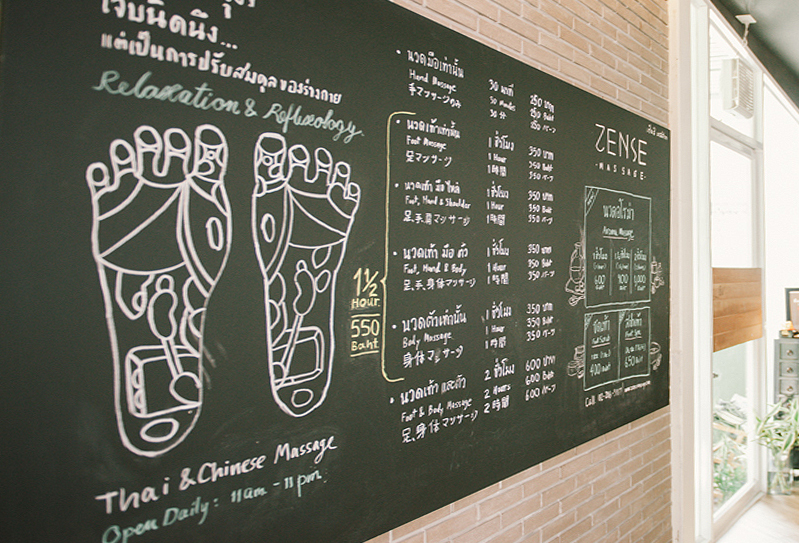 เจ็บนิดนึง...
แต่เป็นการปรับสมดุลของร่างกาย
Relaxation & Reflexology
Thai & Chinese Massage
Open Daily: 11am - 11pm.
• นวดมือเท่านั้น 30 นาที 250 บาท
Hand Massage 30 Minutes 250 Baht
手マッサージのみ 30 分 250 バーツ
• นวดเท้าเท่านั้น 1 ชั่วโมง 350 บาท
Foot Massage 1 Hour 350 Baht
足マッサージ 1 時間 350 バーツ
• นวดเท้า มือ ไหล่ 1 ชั่วโมง 350 บาท
Foot, Hand & Shoulder 1 Hour 350 Baht
足、手、肩マッサージ 1 時間 350 バーツ
• นวดเท้า มือ ตัว 1 ชั่วโมง 350 บาท
Foot, Hand & Body 1 Hour 350 Baht
足、手、身体マッサージ 1 時間 350 バーツ
• นวดตัวเท่านั้น 1 ชั่วโมง 350 บาท
Body Massage 1 Hour 350 Baht
身体マッサージ 1 時間 350 バーツ
• นวดเท้า และตัว 2 ชั่วโมง 600 บาท
Foot & Body Massage 2 Hours 600 Baht
足、身体マッサージ 2 時間 600 バーツ
1½
Hour
550
Baht
ZENSE
• MASSAGE •
นวดอโรม่า
Aroma Massage
1 ชั่วโมง 1½ ชั่วโมง 2 ชั่วโมง
600 900 1,000
ขัดเท้า
Foot Scrub
400 baht
650
Call